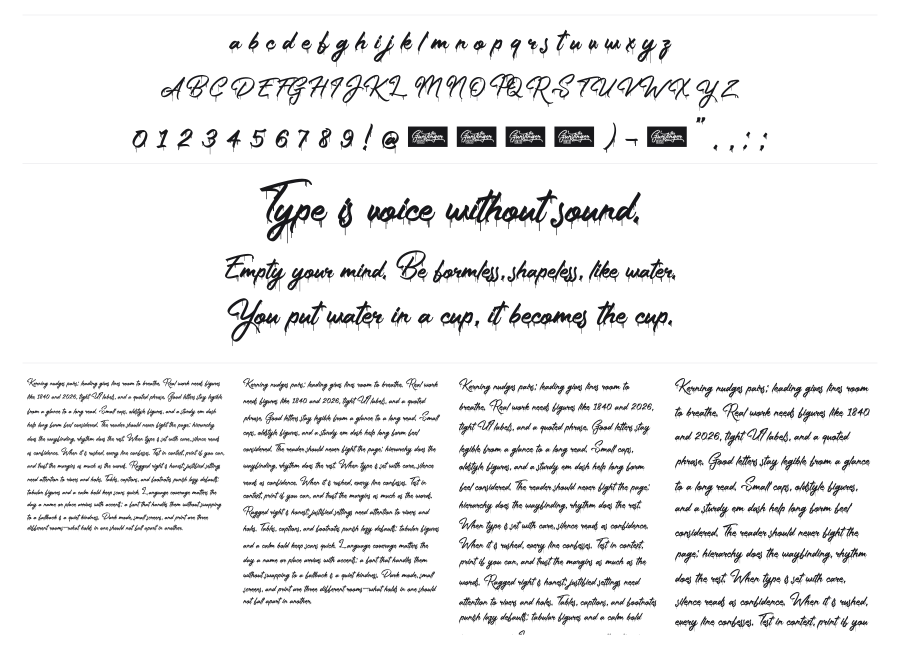 a b c d e f g h i j k l m n o p q r s t u v w x y z
A B C D E F G H I J K L M N O P Q R S T U V W X Y Z
0 1 2 3 4 5 6 7 8 9 ! @ ) - " . , ; :
Type is voice without sound.
Empty your mind. Be formless, shapeless, like water.
You put water in a cup, it becomes the cup.
Kerning nudges pairs; leading gives lines room to breathe. Real work needs figures
like 1840 and 2026, tight UI labels, and a quoted phrase. Good letters stay legible
from a glance to a long read. Small caps, oldstyle figures, and a sturdy em dash
help long form feel considered. The reader should never fight the page; hierarchy
does the wayfinding, rhythm does the rest. When type is set with care, silence reads
as confidence. When it is rushed, every line confesses. Test in context, print if you can,
and trust the margins as much as the words. Ragged right is honest, justified settings
need attention to rivers and holes. Tables, captions, and footnotes punish lazy defaults;
tabular figures and a calm bold keep scans quick. Language coverage matters the
day a name or place arrives with accents; a font that handles them without swapping
to a fallback is a quiet kindness. Dark mode, small screens, and print are three
different rooms—what holds in one should not fall apart in another.
Kerning nudges pairs; leading gives lines room to breathe. Real work
needs figures like 1840 and 2026, tight UI labels, and a quoted
phrase. Good letters stay legible from a glance to a long read. Small
caps, oldstyle figures, and a sturdy em dash help long form feel
considered. The reader should never fight the page; hierarchy does the
wayfinding, rhythm does the rest. When type is set with care, silence
reads as confidence. When it is rushed, every line confesses. Test in
context, print if you can, and trust the margins as much as the words.
Ragged right is honest, justified settings need attention to rivers and
holes. Tables, captions, and footnotes punish lazy defaults; tabular figures
and a calm bold keep scans quick. Language coverage matters the
day a name or place arrives with accents; a font that handles them
without swapping to a fallback is a quiet kindness. Dark mode, small
screens, and print are three different rooms—what holds in one should
not fall apart in another.
Kerning nudges pairs; leading gives lines room to
breathe. Real work needs figures like 1840 and 2026,
tight UI labels, and a quoted phrase. Good letters stay
legible from a glance to a long read. Small caps,
oldstyle figures, and a sturdy em dash help long form
feel considered. The reader should never fight the page;
hierarchy does the wayfinding, rhythm does the rest.
When type is set with care, silence reads as confidence.
When it is rushed, every line confesses. Test in context,
print if you can, and trust the margins as much as the
words. Ragged right is honest, justified settings need
attention to rivers and holes. Tables, captions, and footnotes
punish lazy defaults; tabular figures and a calm bold
Kerning nudges pairs; leading gives lines room
to breathe. Real work needs figures like 1840
and 2026, tight UI labels, and a quoted
phrase. Good letters stay legible from a glance
to a long read. Small caps, oldstyle figures,
and a sturdy em dash help long form feel
considered. The reader should never fight the
page; hierarchy does the wayfinding, rhythm
does the rest. When type is set with care,
silence reads as confidence. When it is rushed,
every line confesses. Test in context, print if you